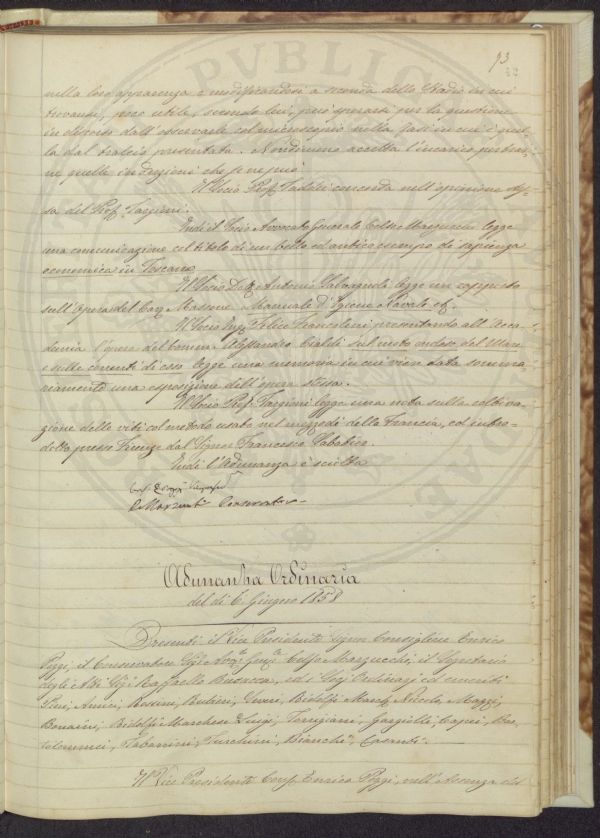 93
nella loro apparenza e modificandosi a seconda dello stadio in cui
trovansi, poco utile, secondo lui, può sperarsi per la questione
in discorso dall'osservarle col microscopio nella fase in cui è quel-
la dal tralcio presentata. Nondimeno accetta l'incarico per trar-
ne quelle induzioni che se ne può.
Il Socio Prof. Taddei concorda nell'opinione
sa del Prof. Targioni.
Indi il Socio Avvocato Generale Celso Marzucchi legge
una comunicazione col titolo di un bello ed antico esempio di sapienza
economica in Toscana.
Il Socio Dott. Antonio Salvagnoli legge un rapporto
sull'Opera del Cav. Massone Manuale d'Igiene Navale
Il Socio Ing. Felice Francolini presentando all'Acca-
demia l'opera del Comm. Alessandro Cialdi sul moto ondoso del Mare
e sulle correnti di esso legge una memoria in cui vien data somma-
riamente una esposizione dell'opera stessa.
Il Socio Prof. Targioni legge una nota sulla coltiva-
zione delle viti col metodo usato nel mezzodì della Francia, ed intro-
dotto presso Firenze dal Signor Francesco
Indi l'Adunanza è sciolta
C. Marzucchi Conservatore
Adunanza Ordinaria
del dì 6 Giugno 1858
Presenti il Vice Presidente Signor Consigliere Enrico
Poggi, il Conservatore Sig. Avv. Gen. Celso Marzucchi, il Segretario
degli Atti Sig. Raffaello Busacca, ed i Socj Ordinarj ed emeriti
Amici, Rosini, Rubieri, Ridolfi March. Niccolò, Mazzi,
Bonaini, Ridolfi Marchese Luigi, Torrigiani, Gargiolli, Capei, Bar-
tolommei, Tabarrini, Turchini, Bianchi, Casanti.
Il Vice Presidente Cons. Enrico Poggi, nell'assenza del